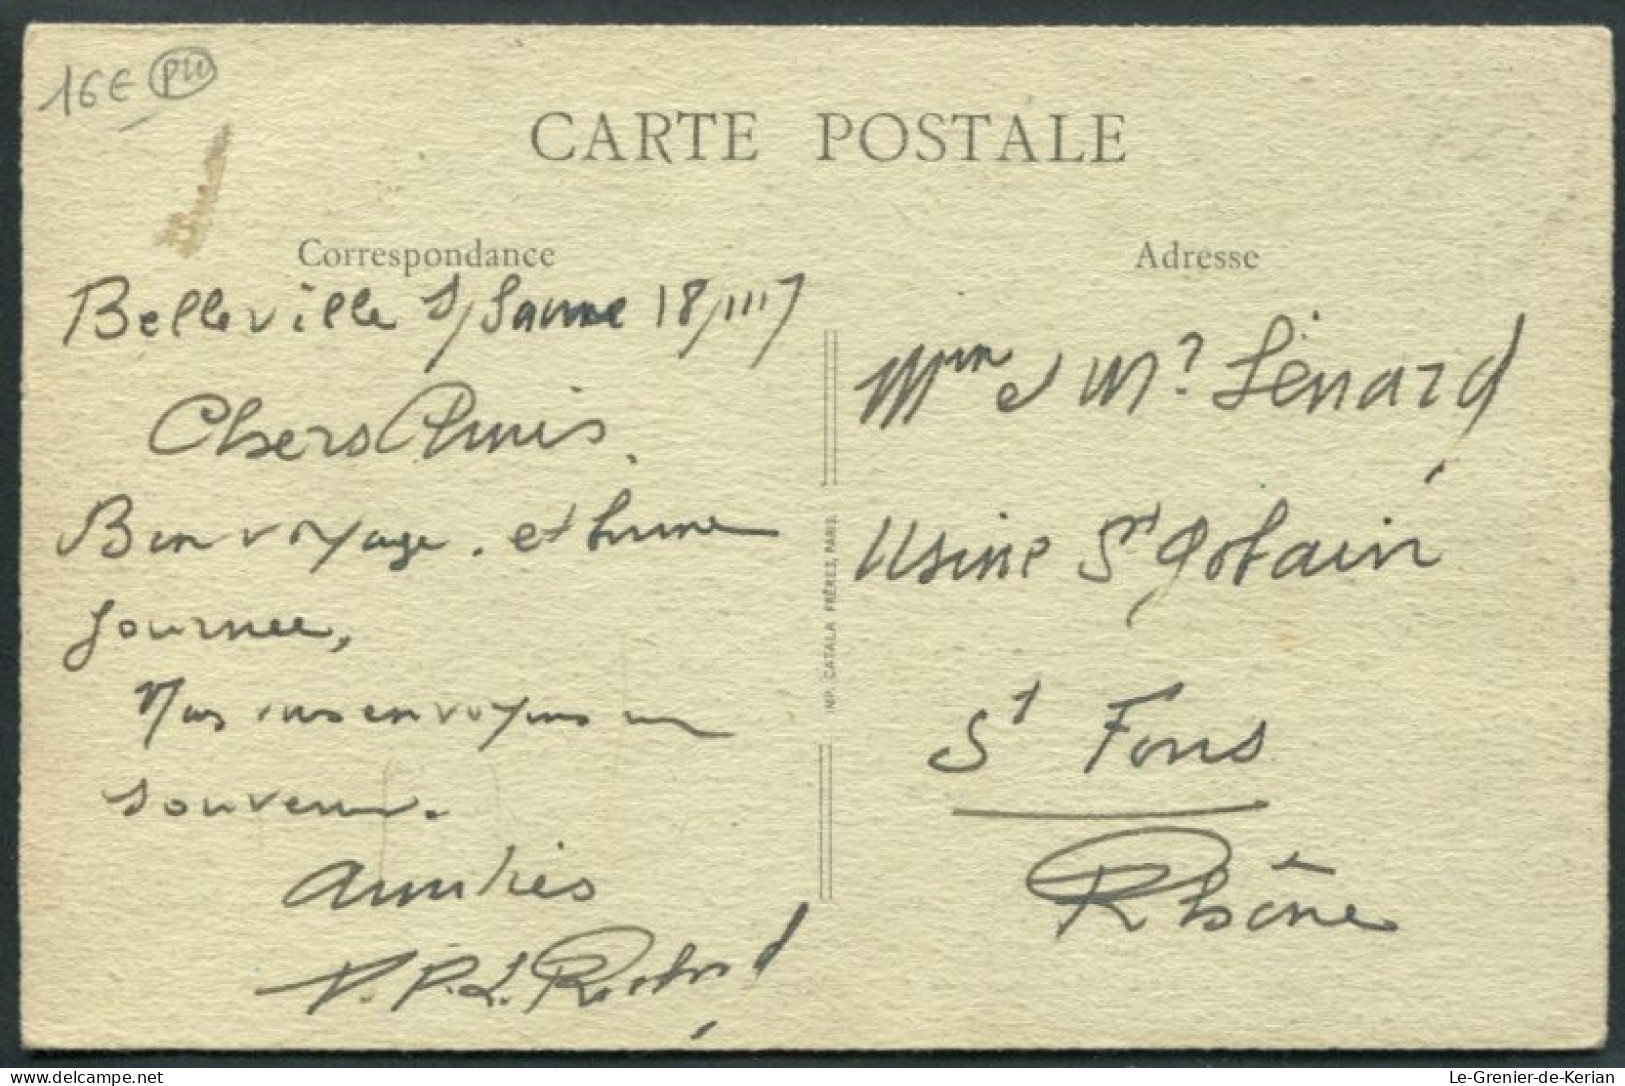 16€ PU
CARTE POSTALE
Correspondance
Adresse
Belleville s/Saone 18/III 7
Chers Amis.
Bon voyage. et bonne
journee,
Nous vous envoyons un
souvenir.
Amitiés
Mme et Mr Lénard
Usine St Gobain
St Fons
Rhône
IMP. CATALA FRÈRES, PARIS.
Le-Grenier-de-Kerian